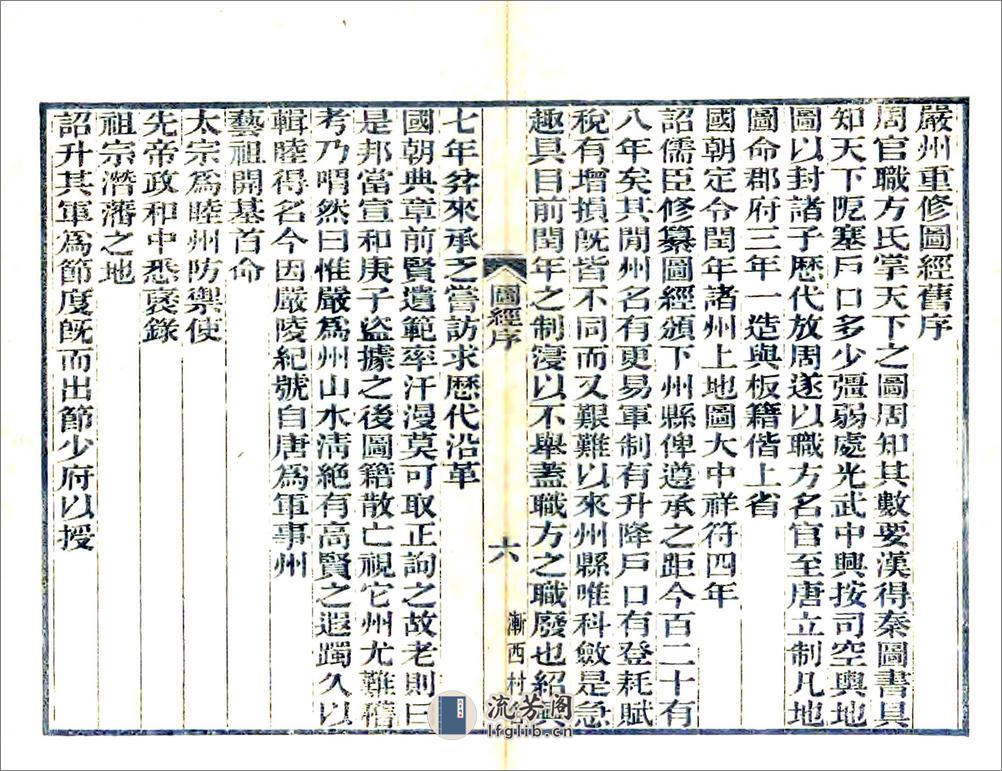 嚴州重修圖經舊序
周官職方氏掌天下之圖周知其數要漢得秦圖書具
知天下阨塞戶口多少彊弱處光武中興按司空輿地
圖以封諸子歷代放周遂以職方名官至唐立制凡地
圖命郡府三年一造與板籍偕上省
國朝定令閏年諸州上地圖大中祥符四年
詔儒臣修纂圖經頒下州縣俾遵承之距今百二十有
八年矣其閒州名有更易軍制有升降戶口有登耗賦
稅有增損旣皆不同而又艱難以來州縣唯科斂是急
趣具目前閏年之制寖以不舉蓋職方之職廢也紹興
圖經序
六
漸西村
七年弅來承乏嘗訪求歷代沿革
國朝典章前賢遺範率汗漫莫可取正詢之故老則曰
是邦當宣和庚子盜據之後圖籍散亡視它州尤難稽
考乃喟然曰惟嚴爲州山水淸絶有高賢之遐躅久以
輯睦得名今因嚴陵紀號自唐爲軍事州
藝祖開基首命
太宗爲睦州防禦使
先帝政和中悉裒錄
祖宗潛藩之地
詔升其軍爲節度旣而出節少府以授
流芳阁
lfglib.cn